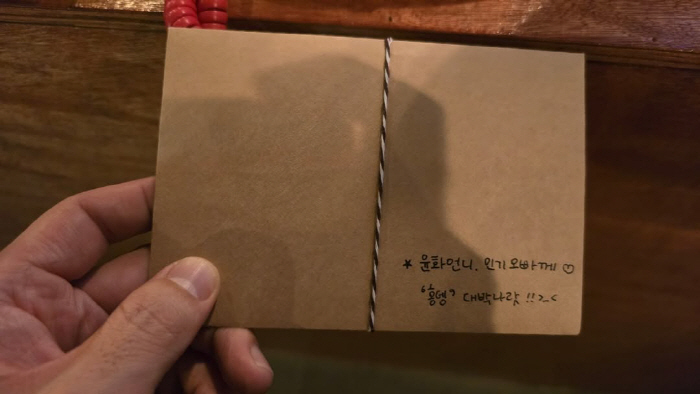 ★ 윤화언니. 민기오빠께 ♡
대박나랏 !! >.<